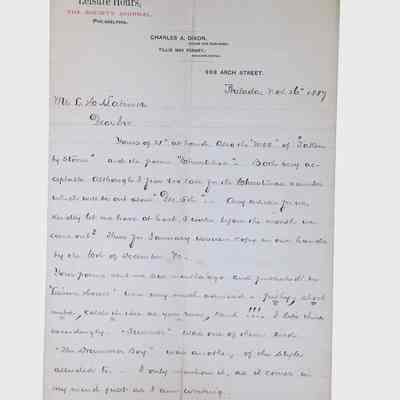 Leisure Hours,
THE SOCIETY JOURNAL,
PHILADELPHIA.
CHARLES A. DIXON,
TILLIE MAY FORNEY,
908 ARCH STREET.
Philada Nov. 26th 1887
Mr. C.
Dear Sir
Yours of 21st at hand. Also the "MSS" of "Taken
by Storm" and the poem "Christmas" - Both very ac-
ceptable although I fear too late for the Christmas number
which will be out about Dec. 5th -
kindly let me have at least 2 weeks before the month we
come out? Thus for January have copy in our hands
by the 10th of December
Your poems sent me some months ago and published in
"Leisure Hours" were very much admired
as you may, (and !!! I like them
exceedingly. was one of them and
"The Drummer Boy" was another, of the style
alluded to. - I only mention it, as it comes in
my mind just as I am writing.